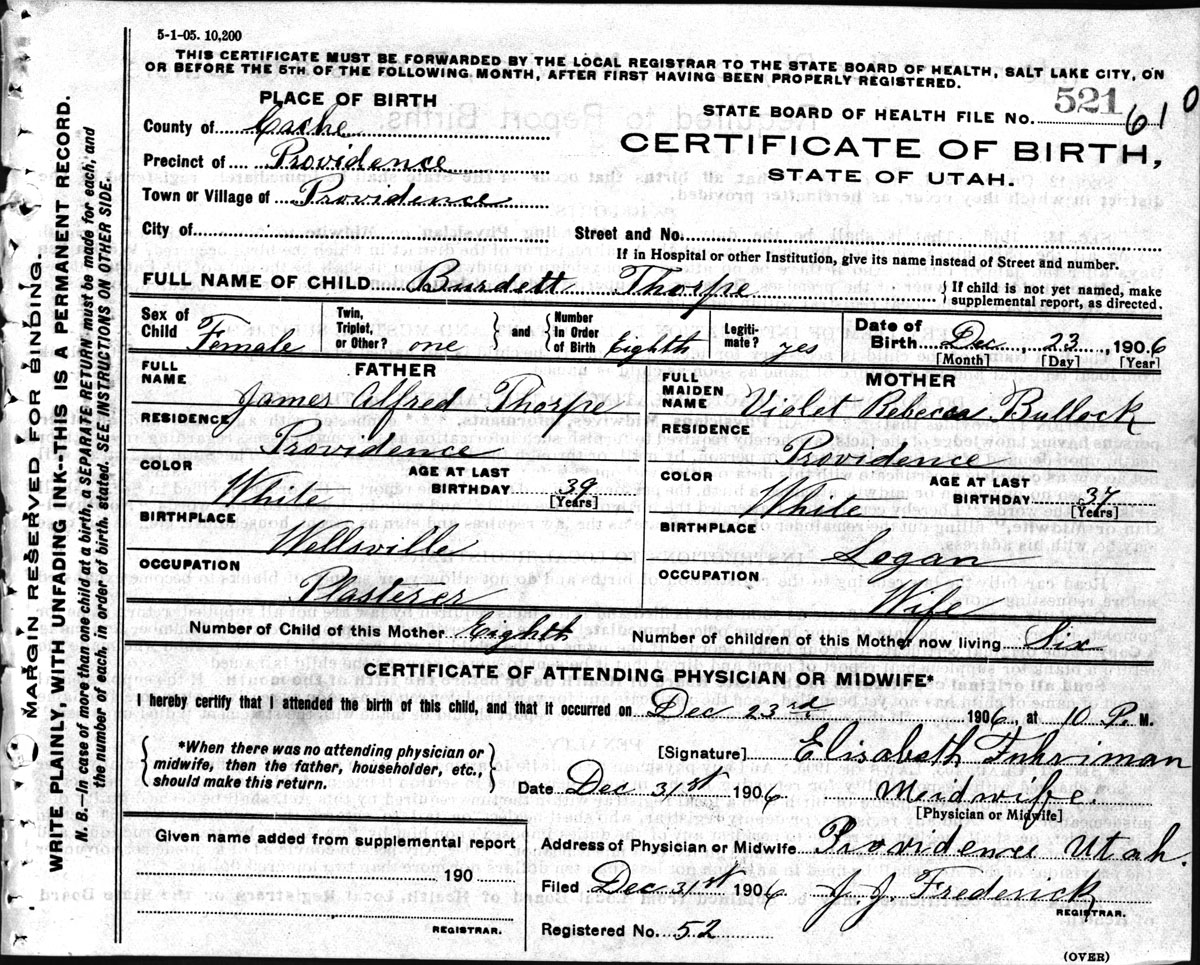 5-1-05. 10,200
THIS CERTIFICATE MUST BE FORWARDED BY THE LOCAL REGISTRAR TO THE STATE BOARD OF HEALTH, SALT LAKE CITY, ON
OR BEFORE THE 5TH OF THE FOLLOWING MONTH, AFTER FIRST HAVING BEEN PROPERLY REGISTERED.
MARGIN RESERVED FOR BINDING.
WRITE PLAINLY, WITH UNFADING INK--THIS IS A PERMANENT RECORD.
N. B.—In case of more than one child at a birth, a SEPARATE RETURN must be made for each, and
the number of each, in order of birth, stated. SEE INSTRUCTIONS ON OTHER SIDE.
PLACE OF BIRTH
County of Cache
Precinct of Providence
Town or Village of Providence
City of
STATE BOARD OF HEALTH FILE No. 521 610
CERTIFICATE OF BIRTH,
STATE OF UTAH.
Street and No.
If in Hospital or other Institution, give its name instead of Street and number.
FULL NAME OF CHILD Burdett Thorpe
If child is not yet named, make
supplemental report, as directed.
Sex of Child Female
Twin, Triplet, or Other? one
and Number In Order of Birth Eighth
Legiti-mate? yes
Date of Birth Dec 23, 1906
[Month] [Day] [Year]
FATHER
FULL NAME James Alfred Thorpe
RESIDENCE Providence
COLOR White
AGE AT LAST BIRTHDAY 39 [Years]
BIRTHPLACE Wellsville
OCCUPATION Plasterer
MOTHER
FULL MAIDEN NAME Violet Rebecca Bullock
RESIDENCE Providence
COLOR White
AGE AT LAST BIRTHDAY 37 [Years]
BIRTHPLACE Logan
OCCUPATION Wife
Number of Child of this Mother Eighth
Number of children of this Mother now living Six
CERTIFICATE OF ATTENDING PHYSICIAN OR MIDWIFE*
I hereby certify that I attended the birth of this child, and that it occurred on Dec 23rd 1906, at 10 P. M.
*When there was no attending physician or
midwife, then the father, householder, etc.,
should make this return.
[Signature] Elisabeth Fuhriman
Date Dec 31st 1906 Midwife.
[Physician or Midwife]
Given name added from supplemental report
190
REGISTRAR.
Address of Physician or Midwife Providence Utah.
Filed Dec 31st 1906 J. J. Frederick
REGISTRAR.
Registered No. 52
(OVER)